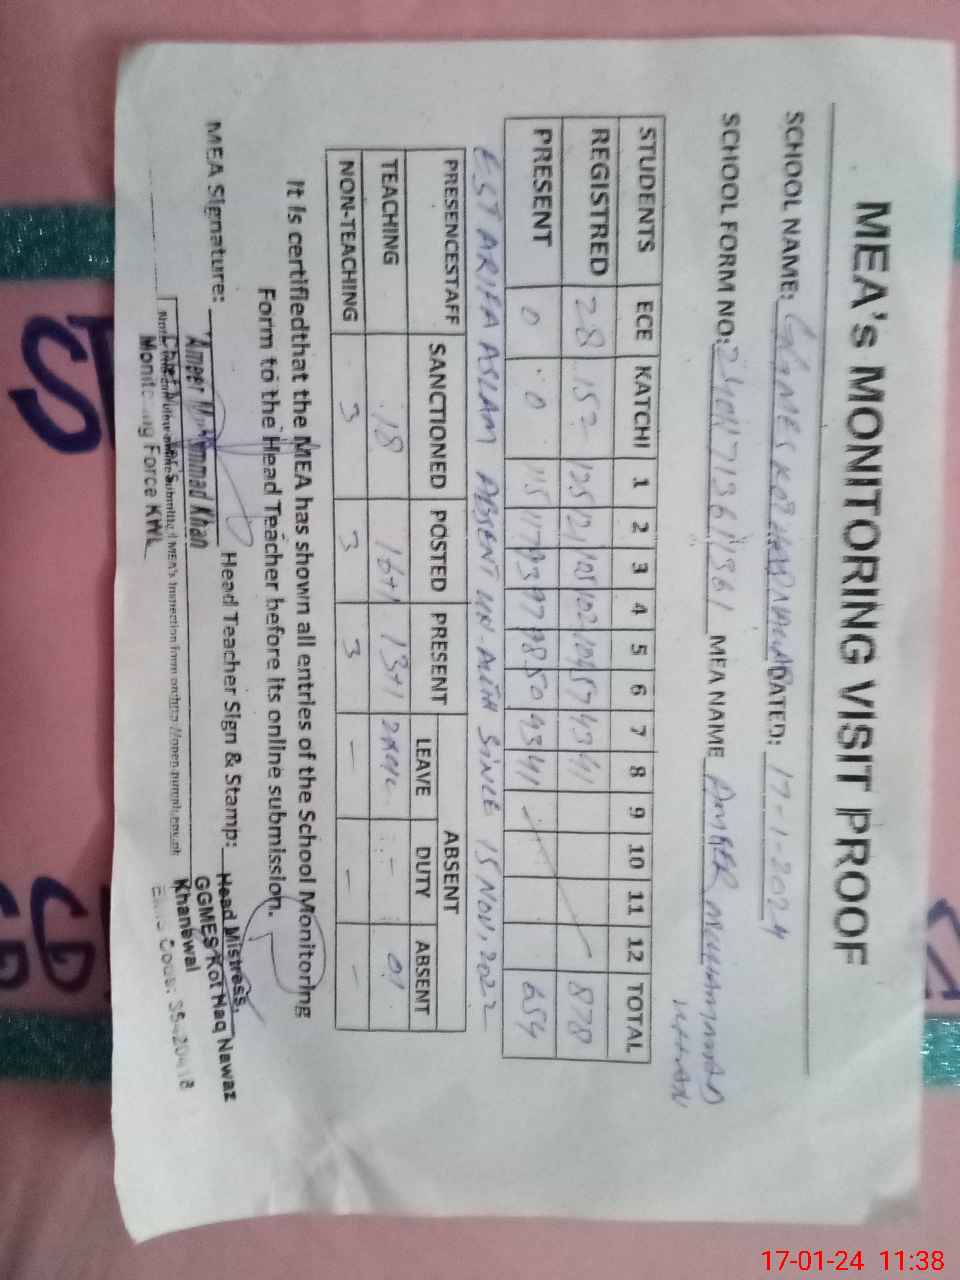 MEA's MONITORING VISIT PROOF
SCHOOL NAME: DATED: 17-1-2024
SCHOOL FORM NO: MEA NAME AMEER MUHAMMAD
KHAN
STUDENTS ECE KATCHI 1 2 3 4 5 6 7 8 9 10 11 12 TOTAL
REGISTRED 28 152 125 121 105 102 104 57 43 41 878
PRESENT 0 0 115 117 93 97 98 50 43 41 654
EST ARIFA ASLAM ABSENT SINCE 15 NOV, 2022
PRESENCESTAFF SANCTIONED POSTED PRESENT ABSENT
LEAVE DUTY ABSENT
TEACHING 18 16+1 13+1 01
NON-TEACHING 3 3 3 - - -
It is certifiedthat the MEA has shown all entries of the School Monitoring
Form to the Head Teacher before its online submission.
MEA Signature: Head Teacher Sign & Stamp: Head Mistress,
Ameer Muhammad Khan GGMES Kot Haq Nawaz
Khanewal
Monitoring Force KWL
17-01-24 11:38